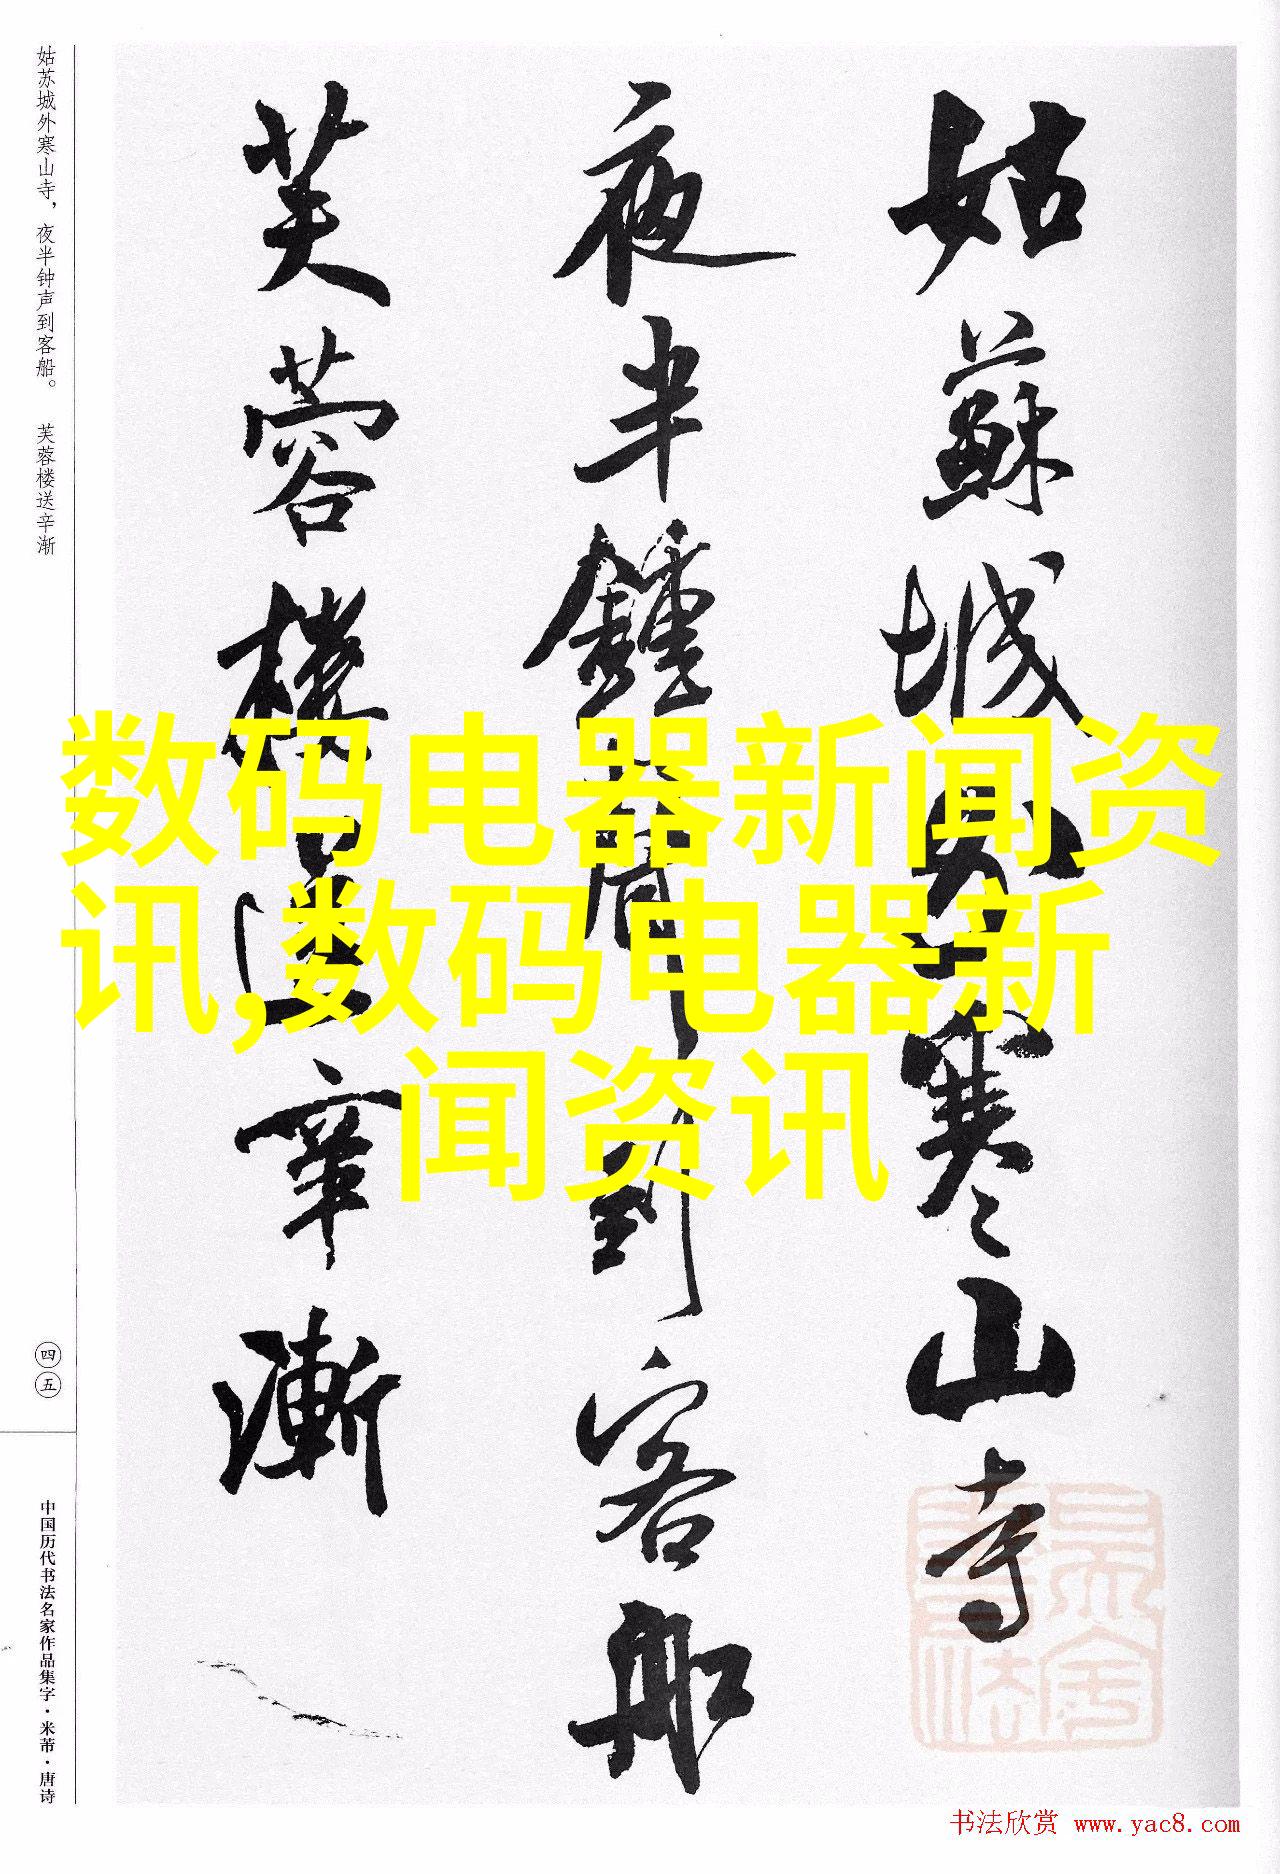 姑蘇城外寒山寺
夜半鐘聲到客船
芙蓉樓送辛漸
姑苏城外寒山寺，夜半钟声到客船。 芙蓉楼送辛渐
四五
中国历代书法名家作品集字·米芾·唐诗
数码电器新闻资
讯,数码电器新
闻资讯
书法欣赏 www.yac8.com